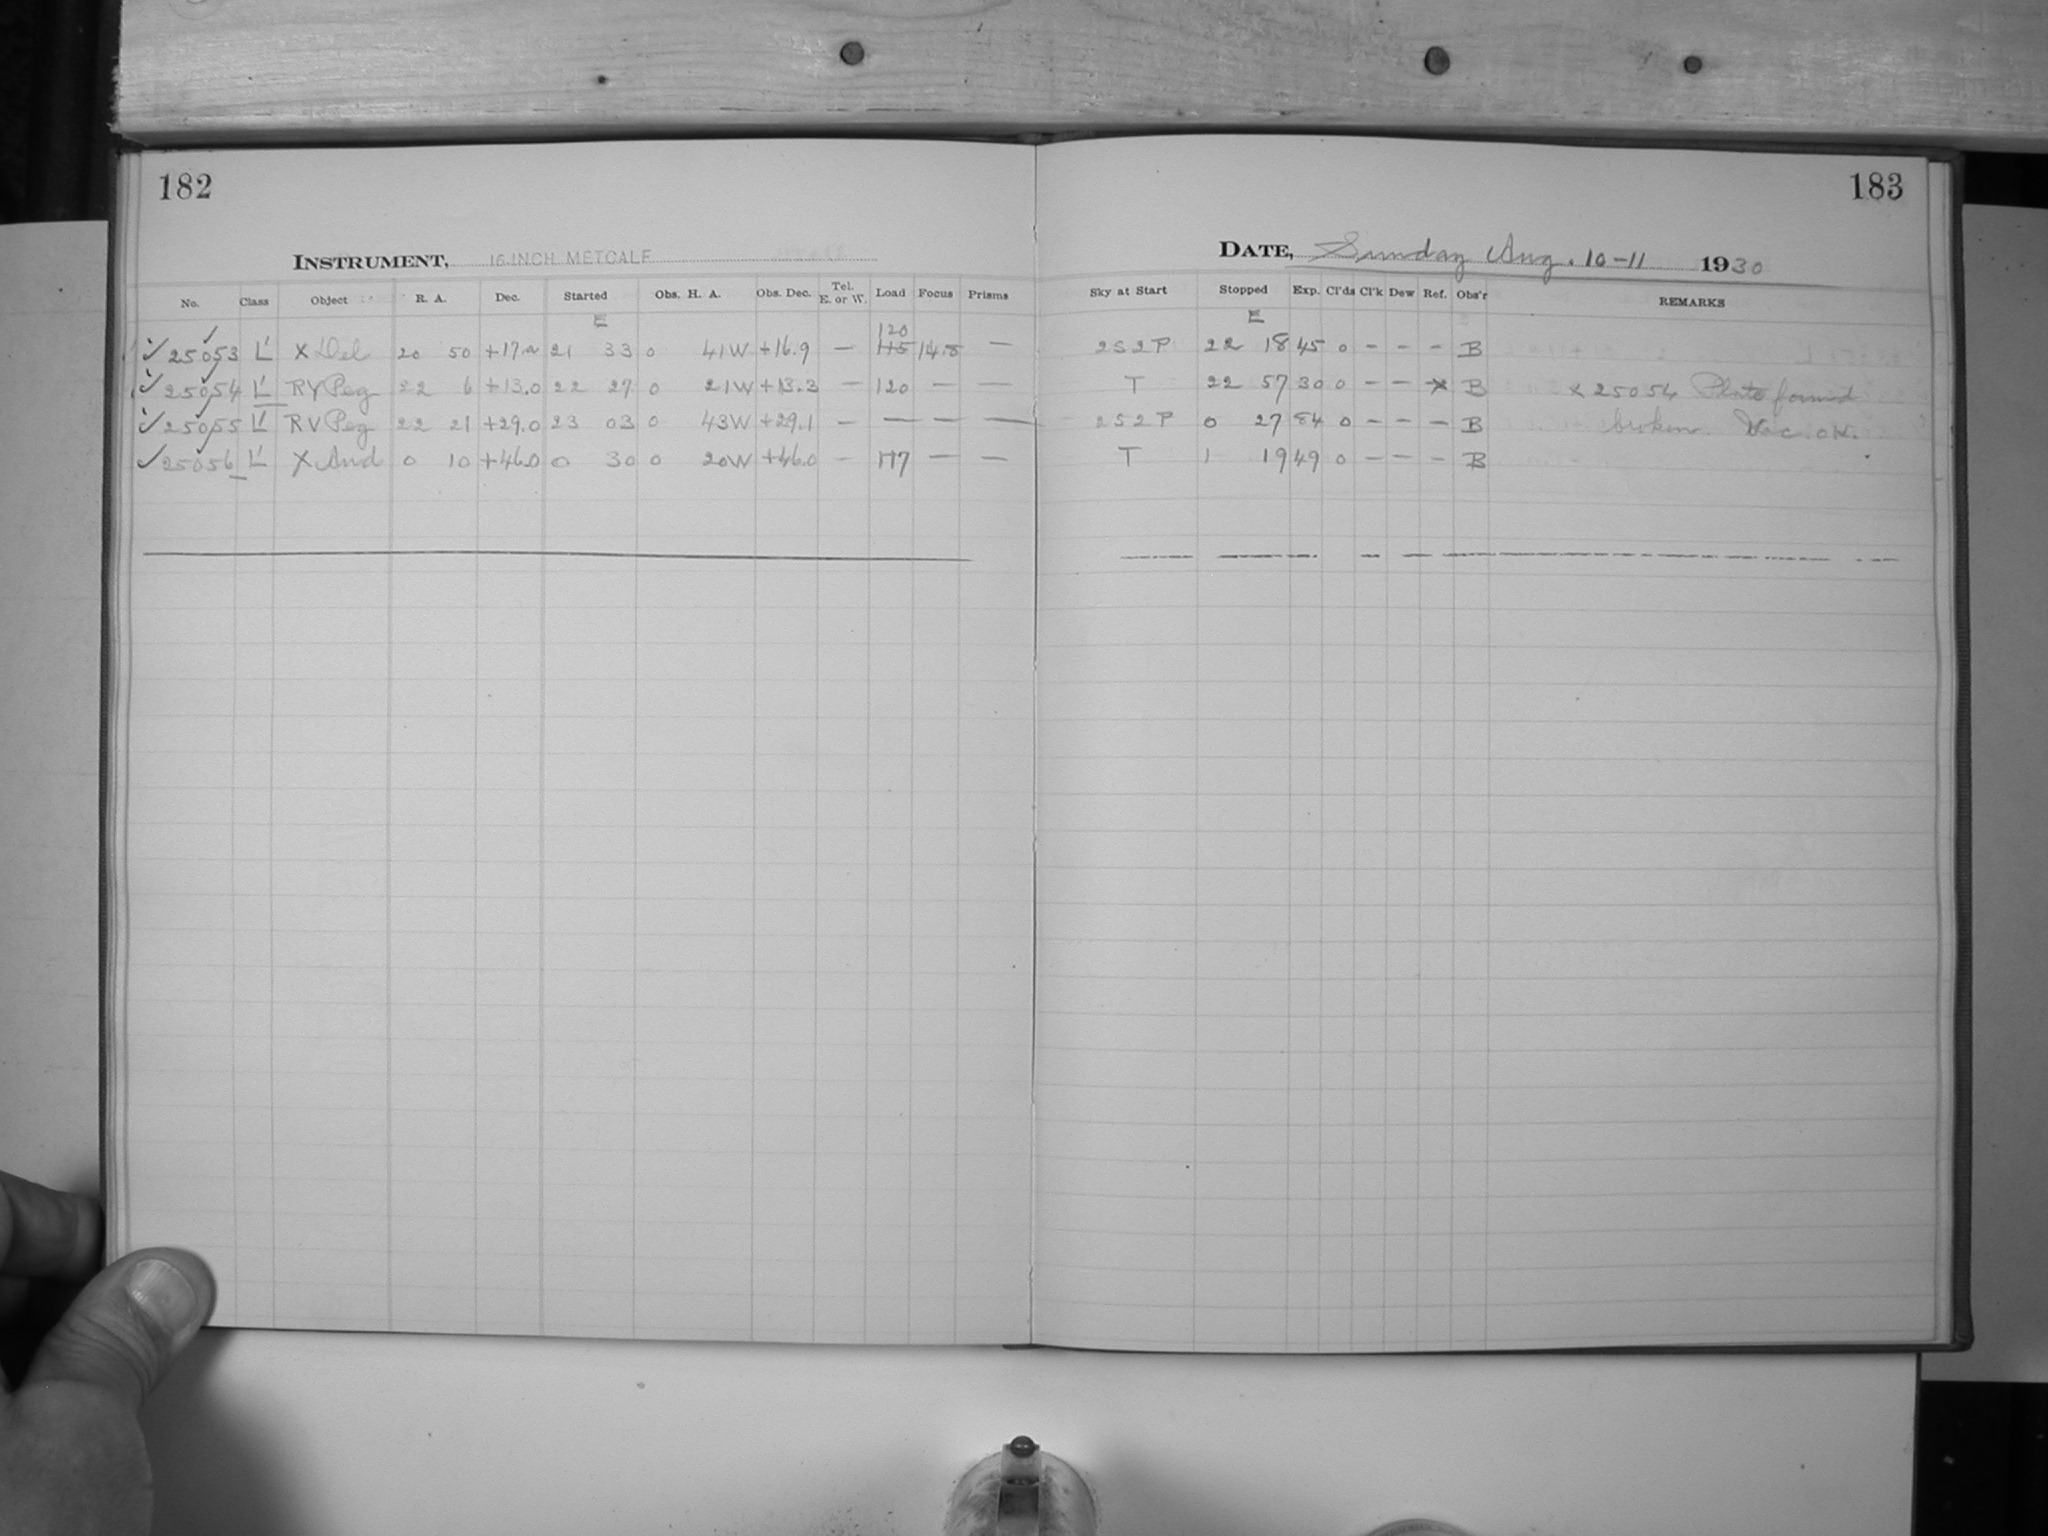 182
183
INSTRUMENT, 16 INCH METCALF
DATE, Sunday Aug. 10-11 1930
No. Class Object R. A. Dec. Started Obs. H. A. Obs. Dec. Tel. E. or W. Load Focus Prisms Sky at Start Stopped Exp. Cl'ds Cl'k Dew Ref. Obs'r REMARKS
E 120 E
25053 L' X Del 20 50 21 33 0 41W +16.9 — 115 14.8 — 2S2P 22 18 45 0 - - - B
25054 L' RY Peg 22 6 +13.0 22 27 0 21W +13.3 — 120 — — T 22 57 30 0 - - x B x 25054 Plate found
25055 L' RV Peg 22 21 +29.0 23 03 0 43W +29.1 — — — — 2S2P 0 27 84 0 - - - B broken. O.K.
25056 L' X And 0 10 +46.0 0 30 0 20W +46.0 - 117 — — T 1 19 49 0 - - - B